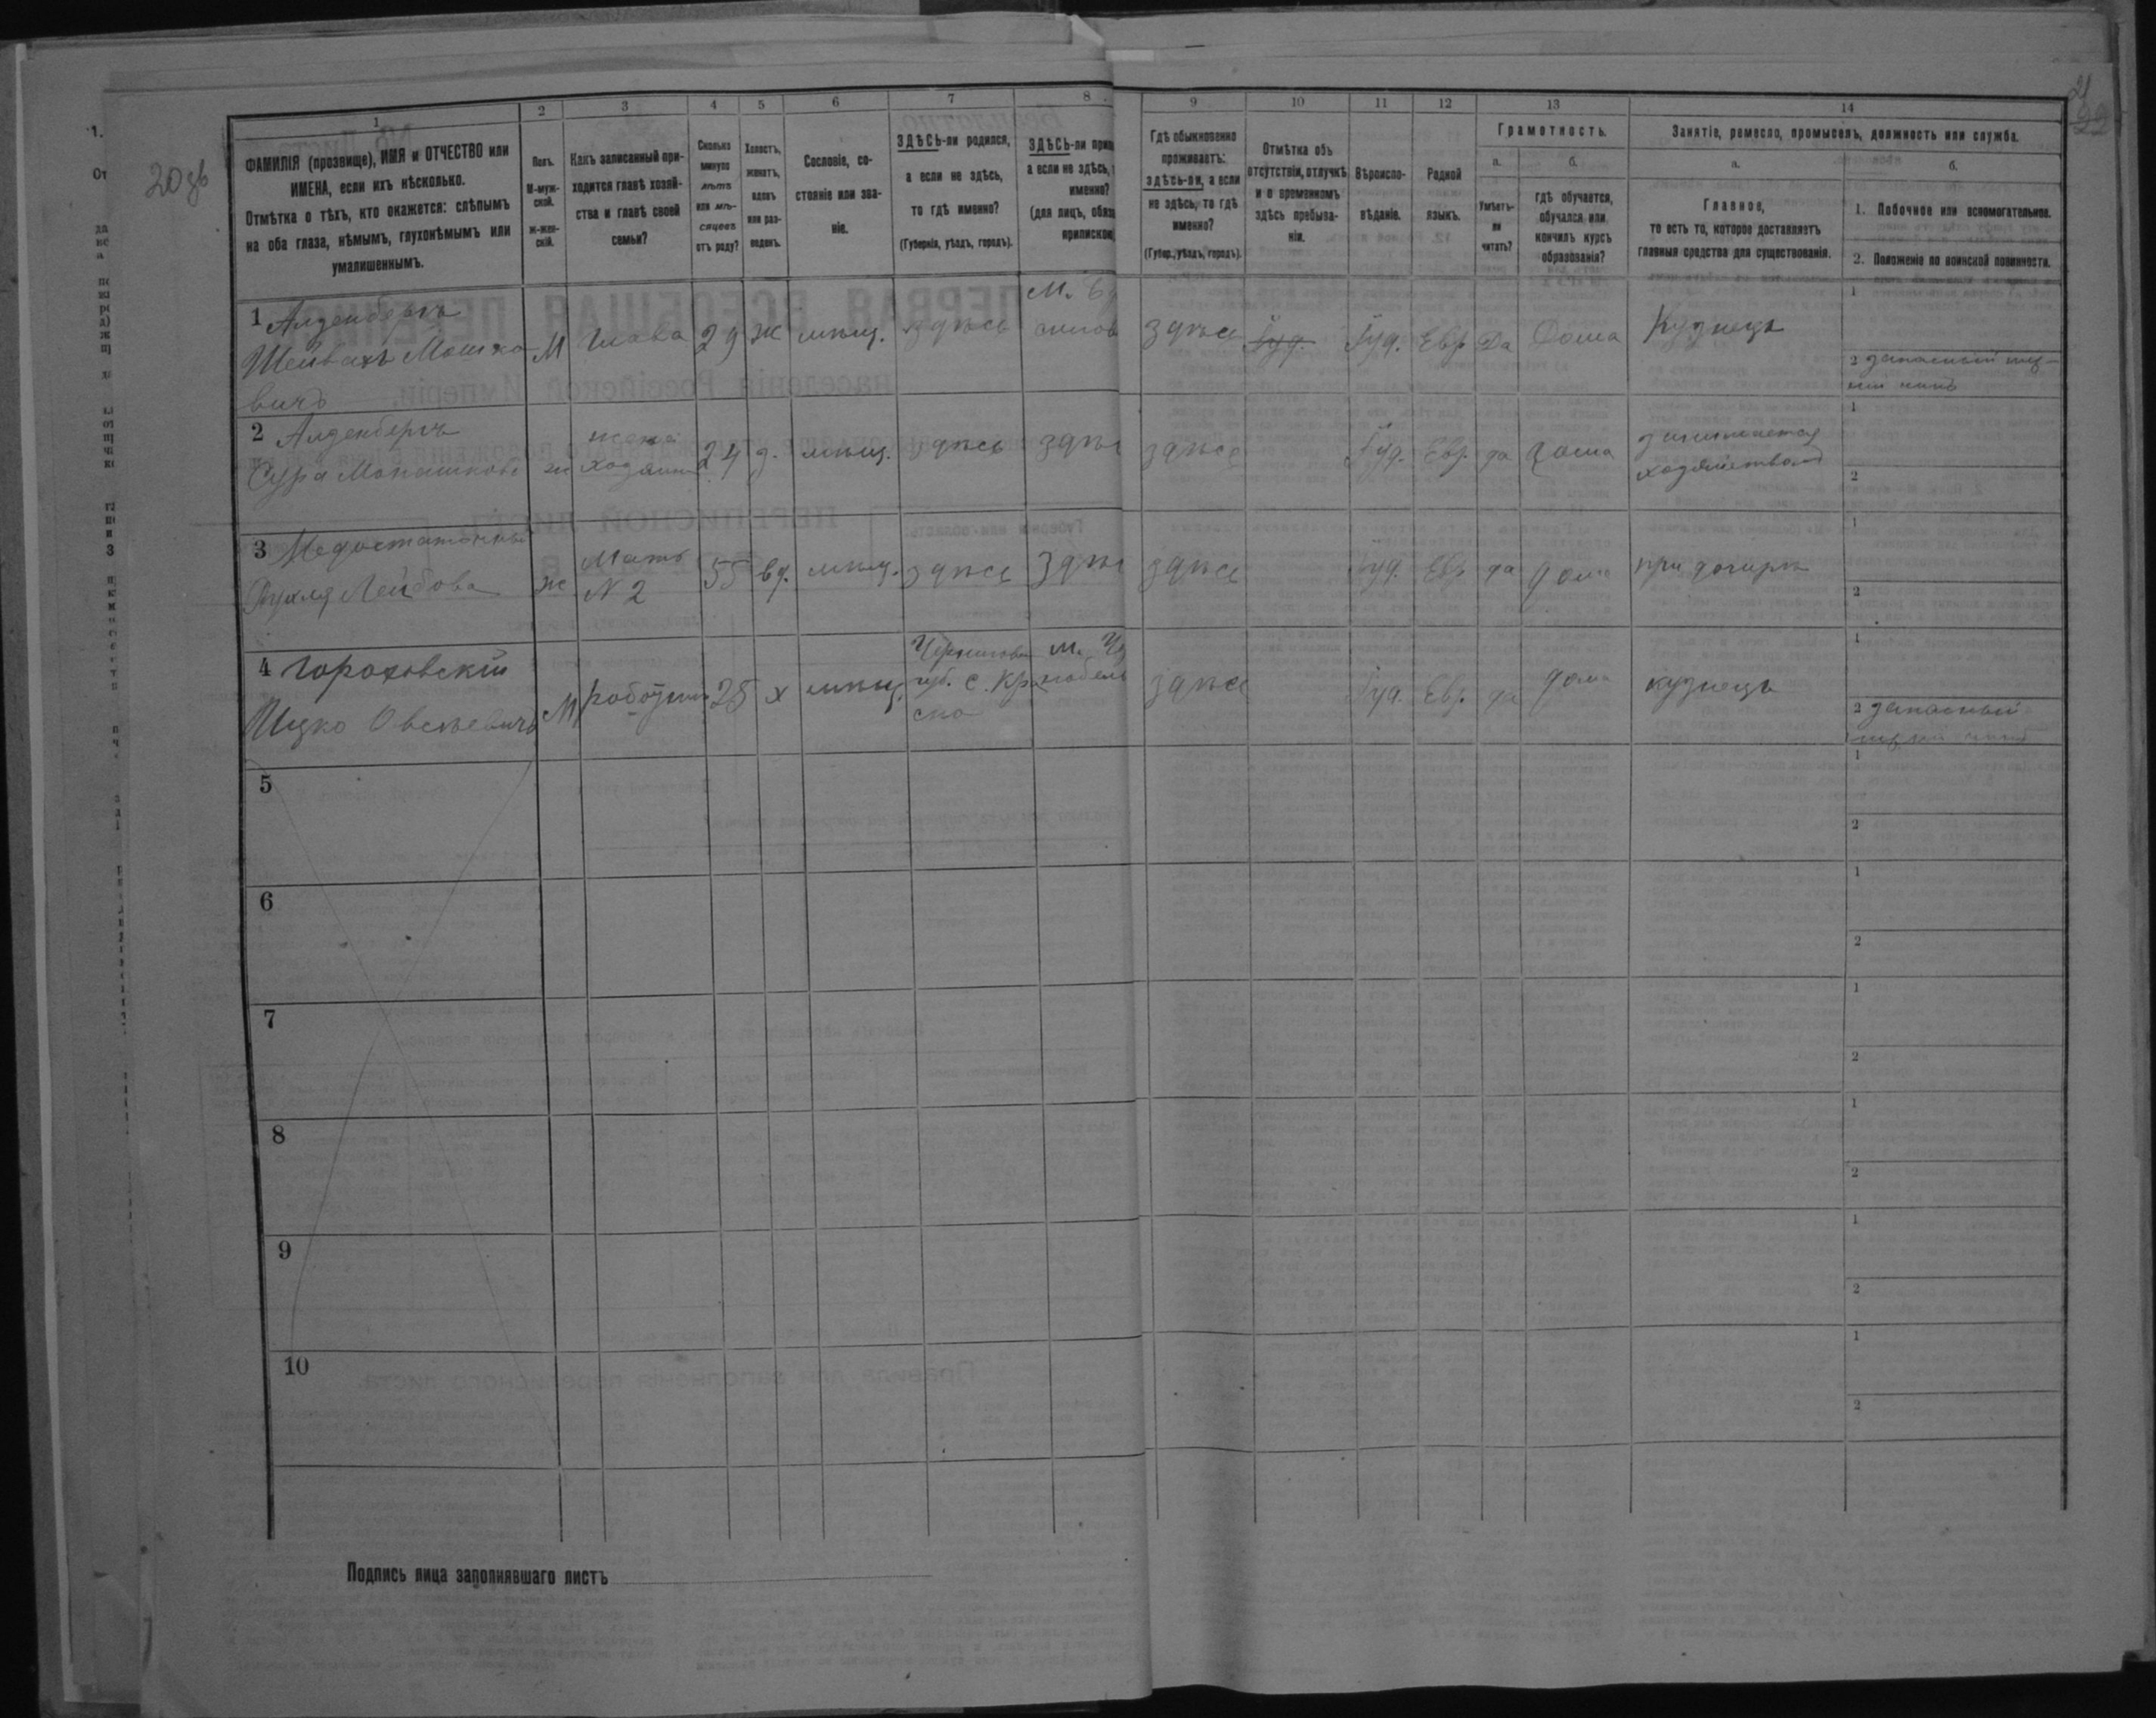 20 дв
21
22
1 2 3 4 5 6 7 8 9 10 11 12 13 14
ФАМИЛІЯ (прозвище), ИМЯ и ОТЧЕСТВО или
ИМЕНА, если ихъ нѣсколько.
Отмѣтка о тѣхъ, кто окажется: слѣпымъ
на оба глаза, нѣмымъ, глухонѣмымъ или
умалишеннымъ.
Полъ.
М-муж-
ской.
ж-жен-
скій.
Какъ записанный при-
ходится главѣ хозяй-
ства и главѣ своей
семьи?
Сколько
минуло
лѣтъ
или мѣ-
сяцевъ
отъ роду?
Холостъ,
женатъ,
вдовъ
или раз-
веденъ.
Сословіе, со-
стояніе или зва-
ніе.
ЗДѢСЬ-ли родился,
а если не здѣсь,
то гдѣ именно?
(Губернія, уѣздъ, городъ).
ЗДѢСЬ-ли прип
а если не здѣсь,
именно?
(для лицъ, обяз
припиской
Гдѣ обыкновенно
проживаетъ:
здѣсь-ли, а если
не здѣсь, то гдѣ
именно?
(Губер., уѣздъ, городъ).
Отмѣтка объ
отсутствіи, отлучкѣ
и о временномъ
здѣсь пребыва-
ніи.
Вѣроиспо-
вѣданіе.
Родной
языкъ.
Грамотность.
а.
Умѣетъ-
ли
читать?
б.
гдѣ обучается,
обучался или
кончилъ курсъ
образованія?
Занятіе, ремесло, промыселъ, должность или служба.
а.
Главное,
то есть то, которое доставляетъ
главныя средства для существованія.
б.
1. Побочное или вспомогательное.
2. Положеніе по воинской повинности.
1 Алденбергъ
Шейвахъ Мошко
вичъ
М Глава 29 Ж мѣщ. здѣсь
М.
здѣсь Іуд. Іуд. Евр Да Дома Кузнецъ
1
2 запасный
чинъ
2 Алденбергъ
Сура
ж
жена
хозяина
24 з. мѣщ. здѣсь здѣс здѣсь Іуд. Евр. да дома
занимается
хозяйствомъ
1
2
3 Недостаточный
Рухля Лейбова
ж
Мать
N 2
55 вд. мѣщ. здѣсь здѣс здѣсь Іуд. Евр да дома при дочери
1
2
4 Гороховскій
Ицко Овсѣевичъ
М 25 х мѣщ.
Чернигов
губ. с.
М.
здѣсь Іуд. Евр. да дома кузнецъ
1
2 запасный
чинъ
5
1
2
6
1
2
7
1
2
8
1
2
9
1
2
10
1
2
Подпись лица заполнявшаго листъ